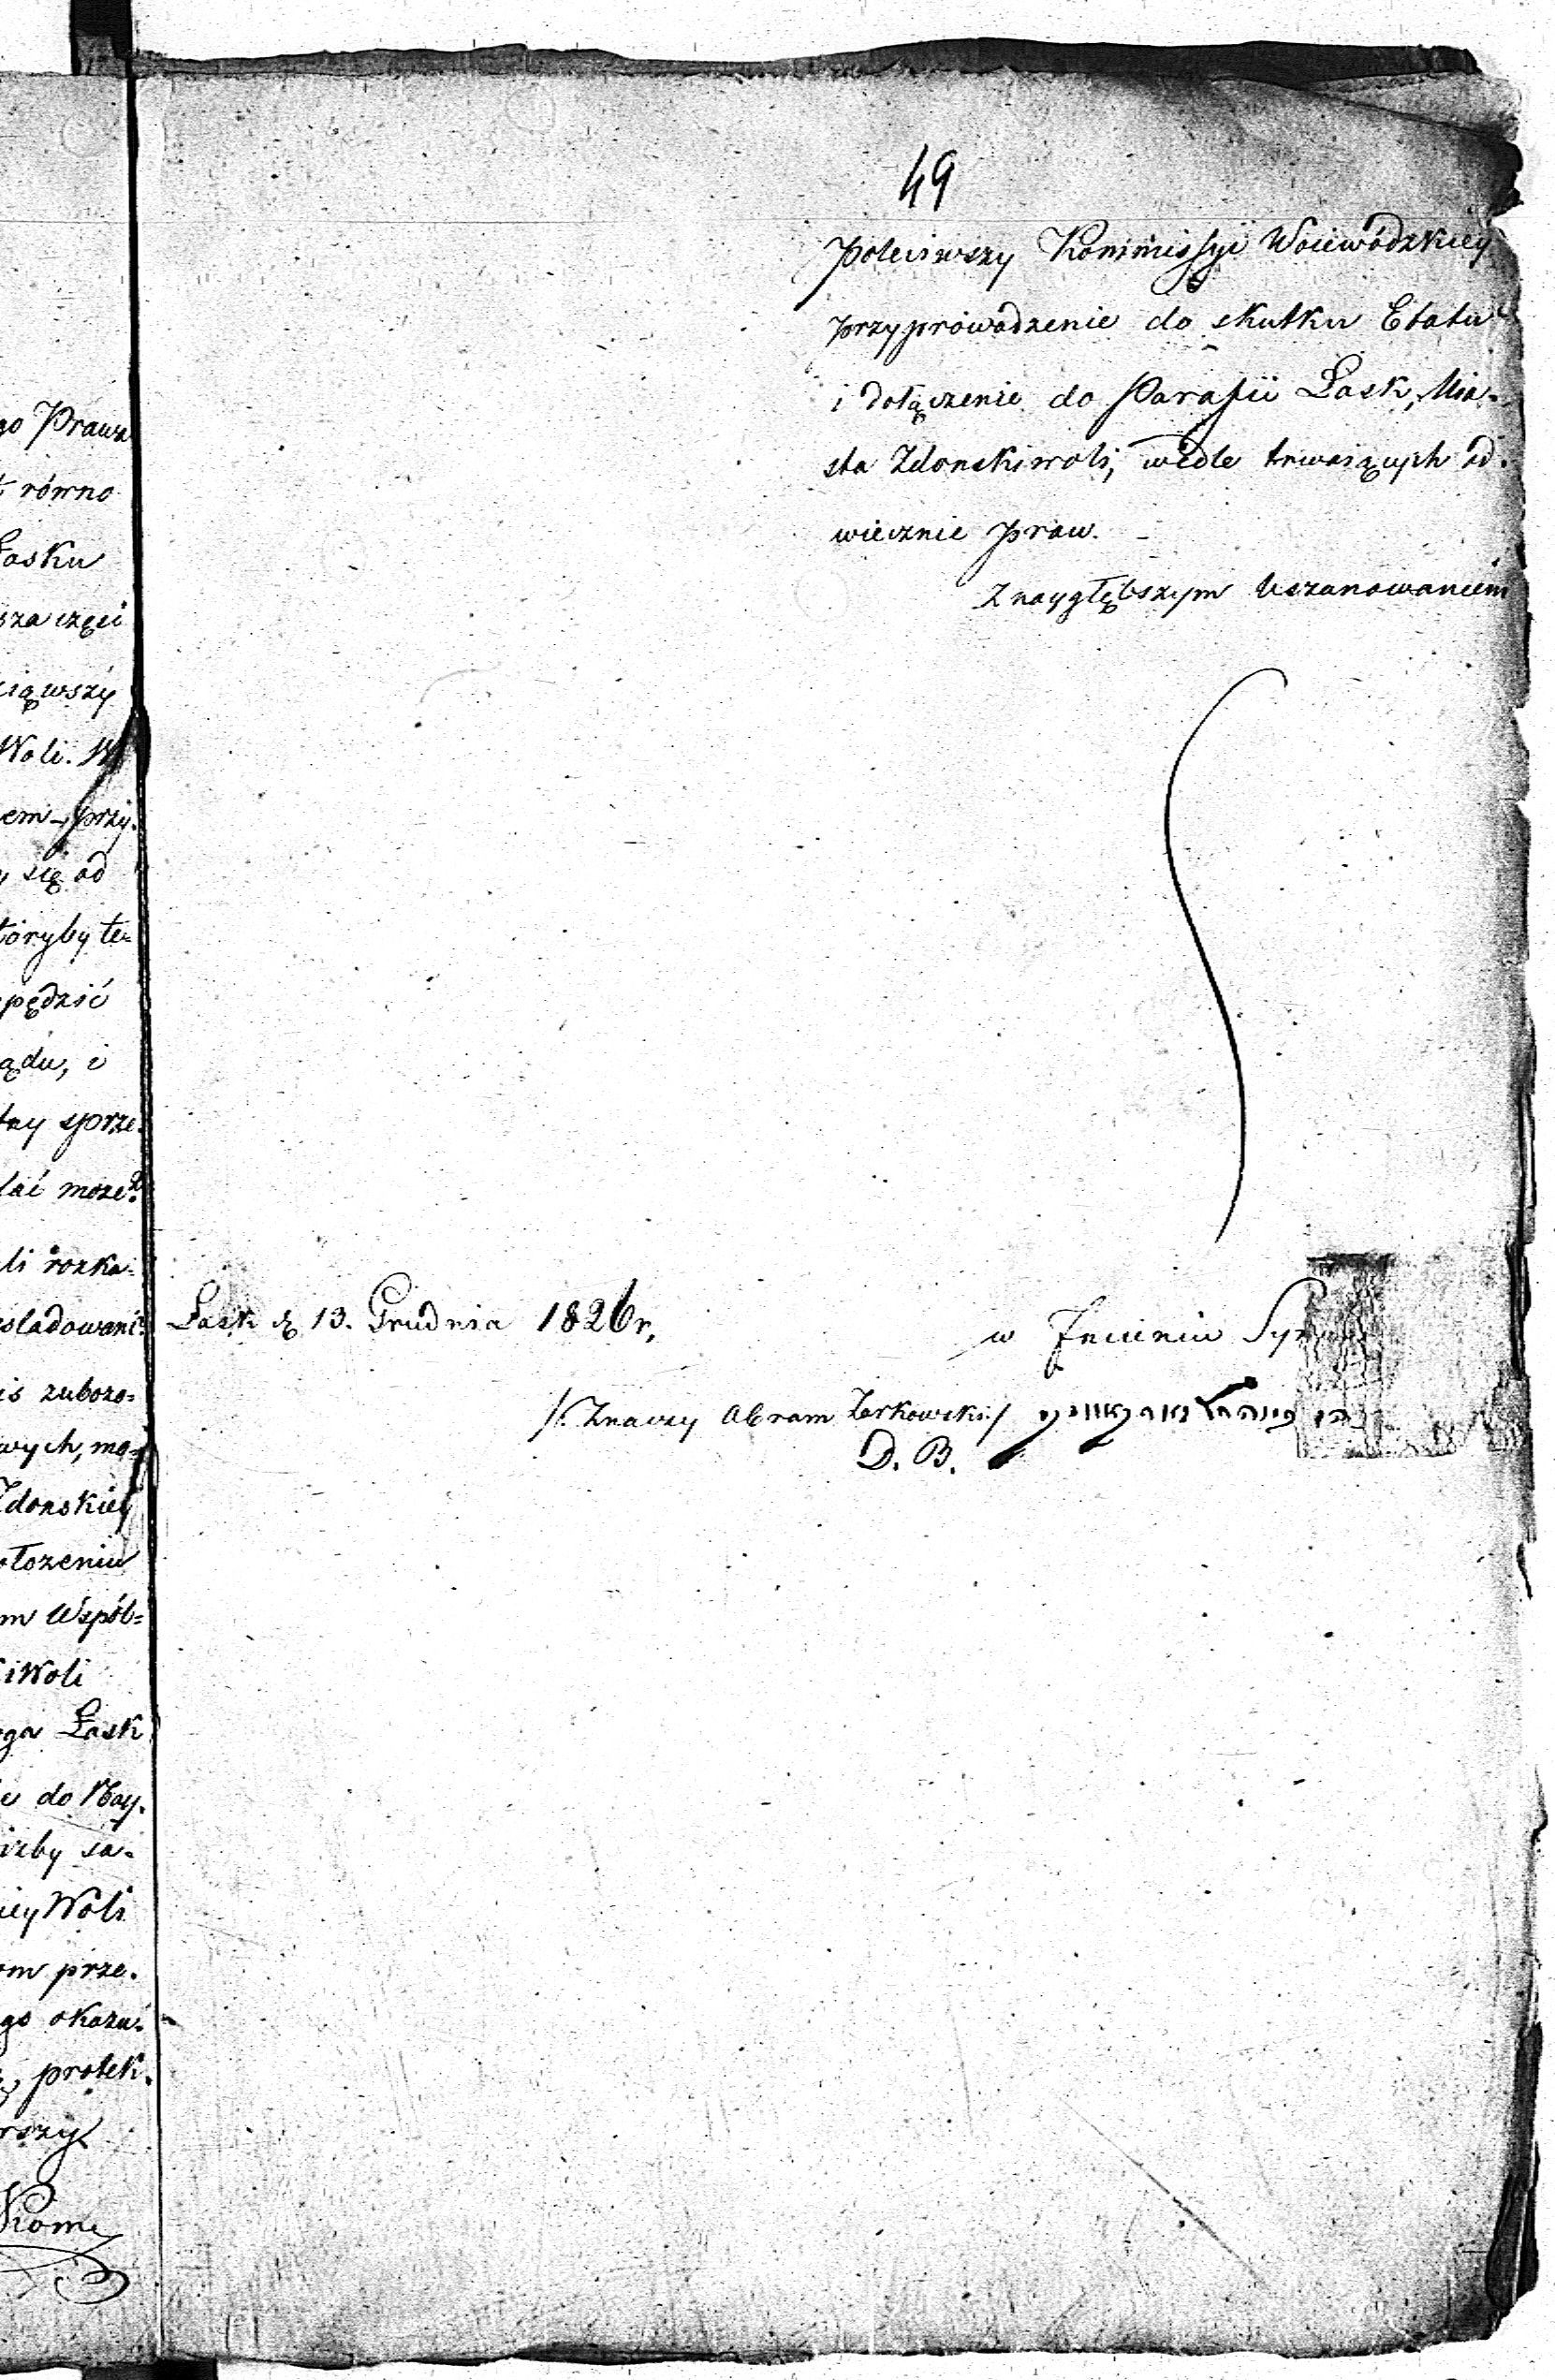 49
go Prawa
t równo
Łasku
sza częśi
ciąwszy
Woli. W
em – przy-
y się od
tóryby te-
pędzić
ądu, i
tny sprze-
lai może
li rozka-
śladowani
is zuboźo-
wych, mo-
Zdonskiey
ołozeniu
m Wspól-
iWoli
oga Łask
ie do Nay-
izby sa-
iey Woli
om prze-
go okazu-
, protek-
rszy
Kom
Poleciwszy Kommissyi Woiewódzkiey
przyprowadzenie do skutku Etatu
i dołączenie do Parafii Łask, Mia-
sta Zdonskiwoli, wedle trwaiących od-
wiecznie praw. –
Z naygłębszym Uszanowaniem
Łask d. 13. Grudnia 1826 r.
w Imieniu
/: Znaczy Abram Zarkowski :/
D. B.